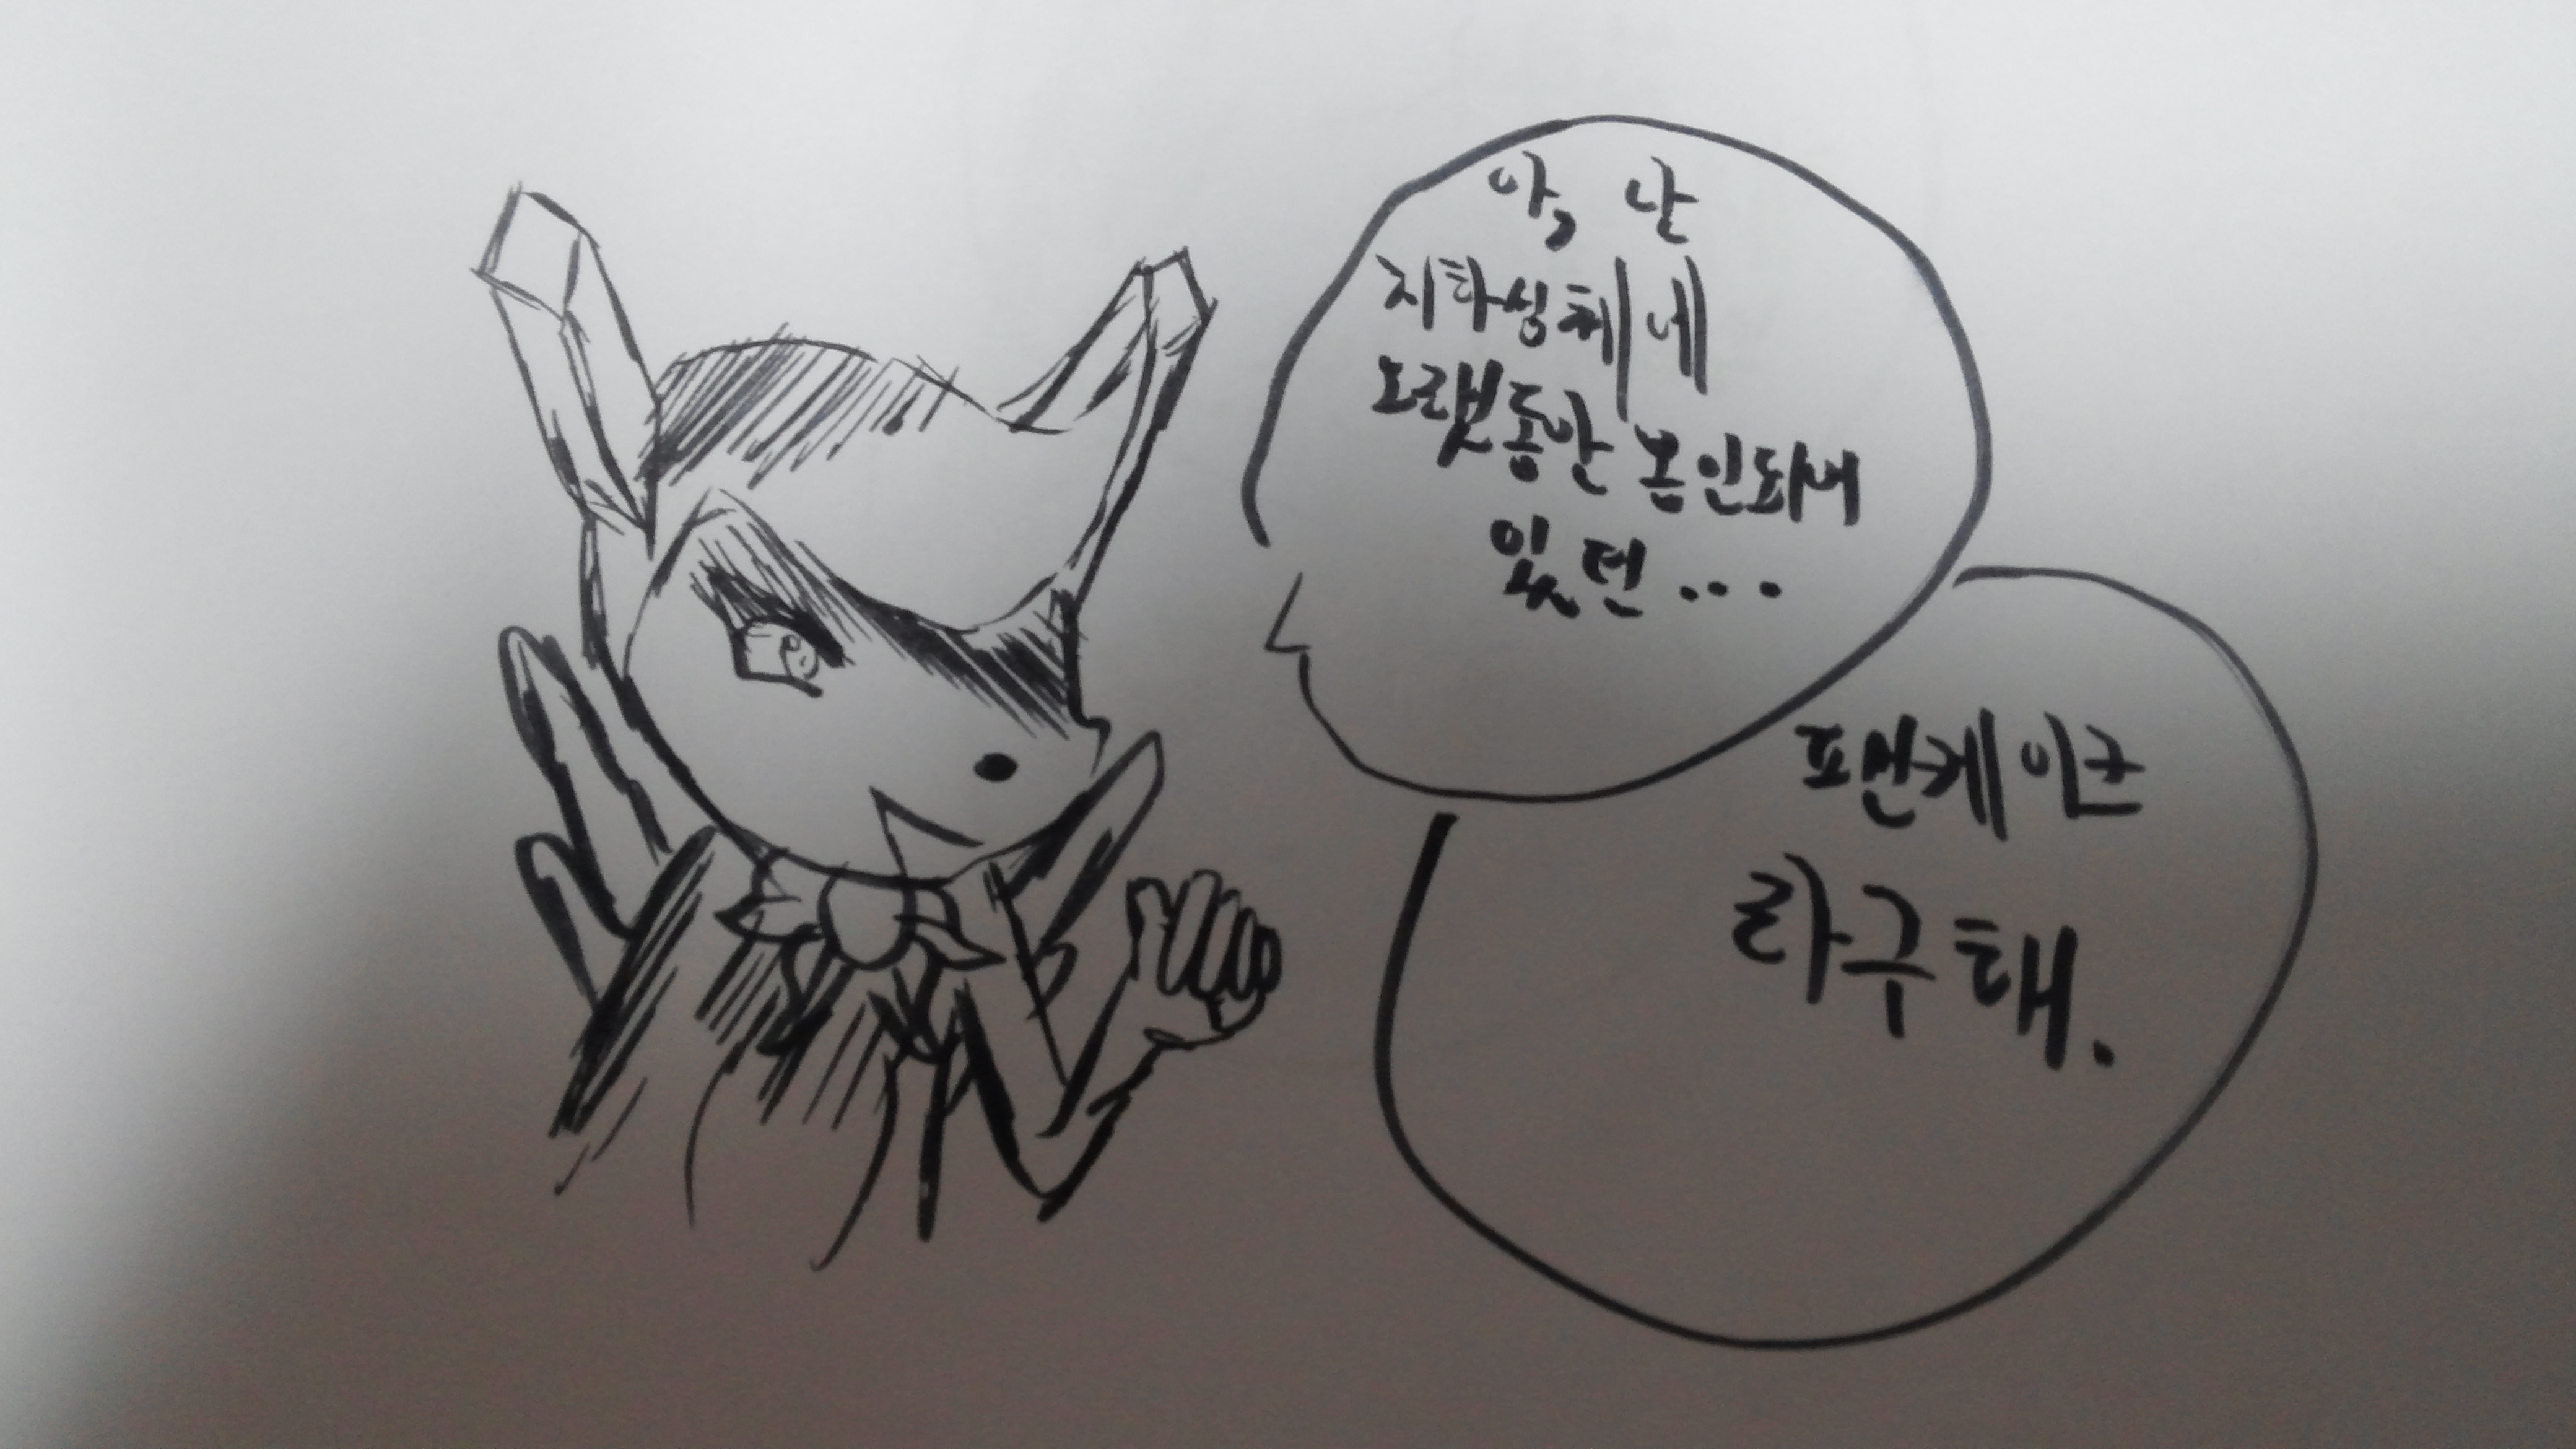 아, 난
지하성체네
오랫동안 봉인되네
있던...
팬케이크
라구해.